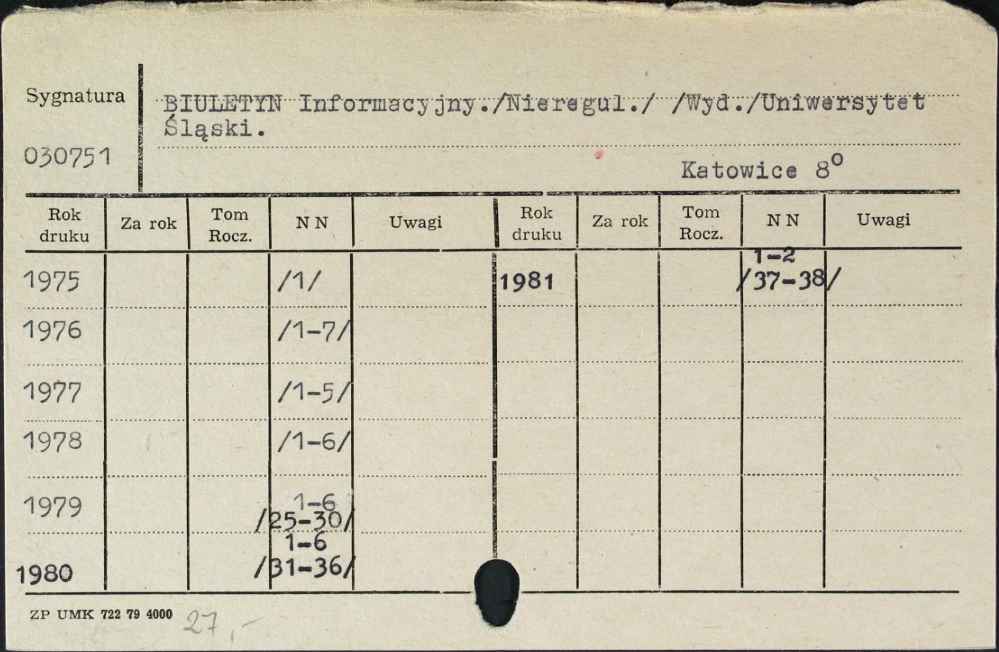 Sygnatura
BIULETYN Informacyjny./Nieregul./ /Wyd./Uniwersytet
Śląski.
030751
Katowice 8º
Rok druku Za rok Tom Rocz. N N Uwagi Rok druku Za rok Tom Rocz. N N Uwagi
1-2
1975 /1/ 1981 /37-38/
1976 /1-7/
1977 /1-5/
1978 /1-6/
1-6
1979 /25-30/
1-6
1980 /31-36/
ZP UMK 722 79 4000 27,-